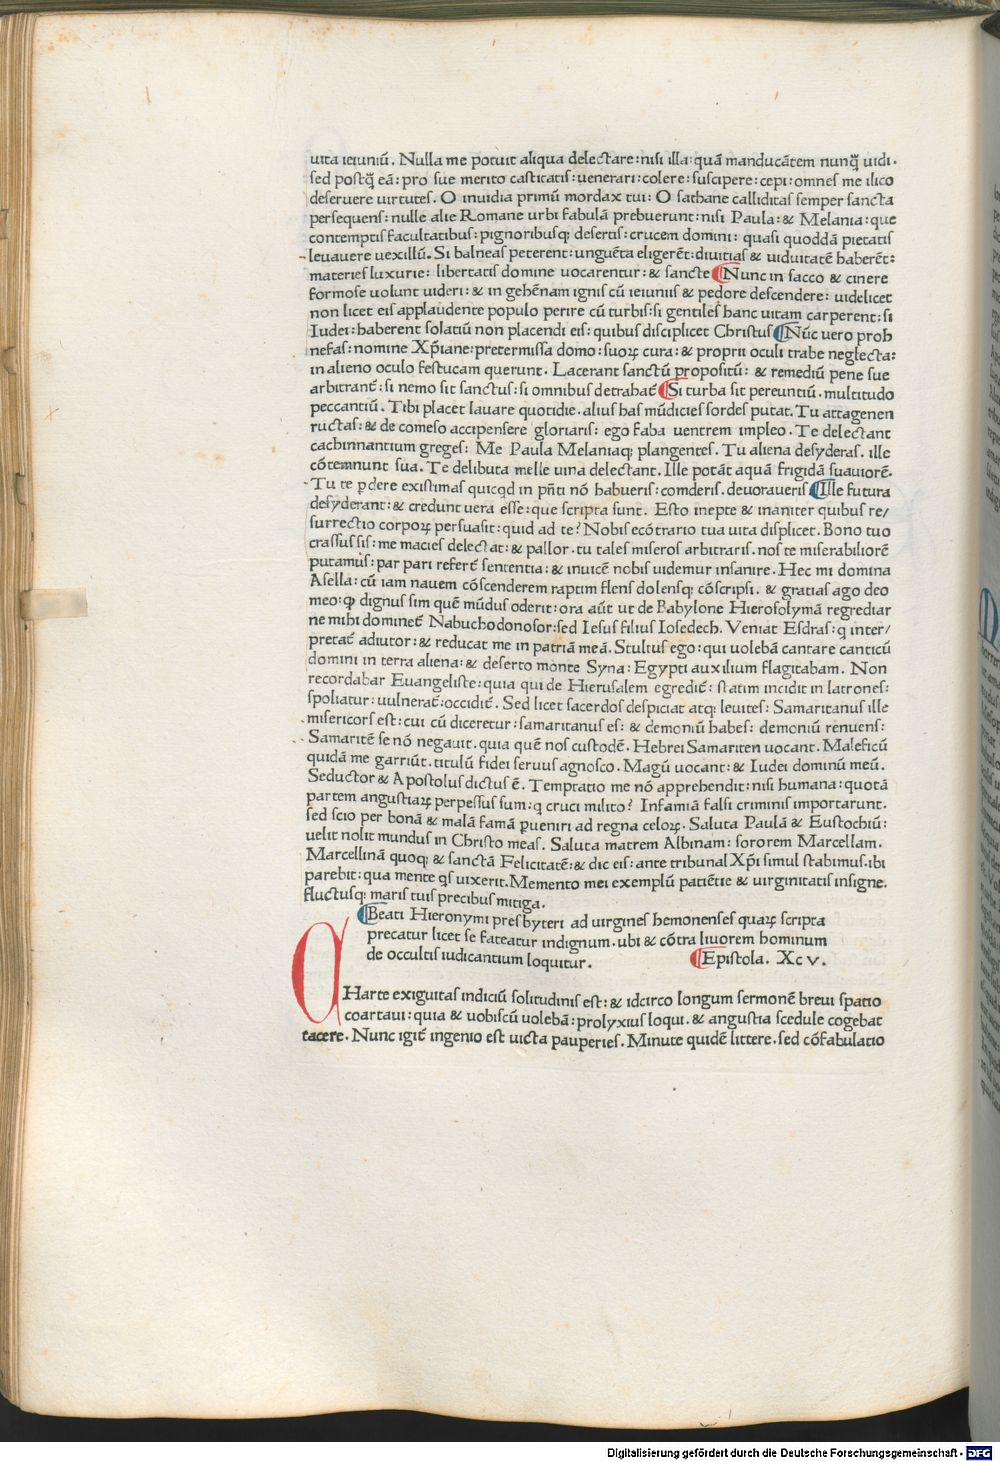 uita ieiuniū. Nulla me potuit aliqua delectare: nisi illa: quā manducātem nunq̄ uidi.
sed postq̄ eā: pro sue merito castitatis: uenerari: colere: suscipere: cepi: omnes me ilico
deseruere uirtutes. O inuidia primū mordax tui: O sathane calliditas semper sancta
persequens: nulle alie Romane urbi fabulā prebuerunt: nisi Paula: & Melania: que
contemptis facultatibus: pignoribusq; desertis: crucem domini: quasi quoddā pietatis
leuauere uexillū. Si balneas peterent: unguēta eligerēt: diuitias & uiduitatē haberēt:
materies luxurie: libertatis domine uocarentur: & sancte ¶ Nunc in sacco & cinere
formose uolunt uideri: & in gehēnam ignis cū ieiuniis & pedore descendere: uidelicet
non licet eis applaudente populo perire cū turbis: si gentiles hanc uitam carperent: si
Iudei: haberent solatiū non placendi eis: quibus displicet Christus ¶ Nūc uero proh
nefas: nomine Xp̄iane: pretermissa domo: suoꝝ cura: & proprii oculi trabe neglecta:
in alieno oculo festucam querunt. Lacerant sanctū propositū: & remediū pene sue
arbitrant᷑: si nemo sit sanctus: si omnibus detrahat᷑ ¶ Si turba sit pereuntiū. multitudo
peccantiū. Tibi placet lauare quotidie. alius has mūdicies sordes putat. Tu attagenen
ructas: & de comeso accipensere gloriaris: ego faba uentrem impleo. Te delectant
cachinnantium greges: Me Paula Melaniaq; plangentes. Tu aliena desyderas. ille
cōtemnunt sua. Te delibuta melle uina delectant. Ille potāt aquā frigidā suauiorē.
Tu te ꝑdere existimas quicqd in pn̄ti nō habueris: comderis. deuoraueris ¶ Ille futura
desyderant: & credunt uera esse: que scripta sunt. Esto inepte & inaniter quibus re/
surrectio corpoꝝ persuasit: quid ad te? Nobis ecōtrario tua uita displicet. Bono tuo
crassus sis: me macies delectat: & pallor. tu tales miseros arbitraris. nos te miserabiliorē
putamus: par pari refert᷑ sententia: & inuicē nobis uidemur insanire. Hec mi domina
Asella: cū iam nauem cōscenderem raptim flens dolensq; cōscripsi. & gratias ago deo
meo: ꝙ dignus sim quē mūdus oderit: ora aūt ut de Babylone Hierosolymā regrediar
ne mihi dominet᷑ Nabuchodonosor: sed Iesus filius Iosedech. Veniat Esdras: q inter/
pretat᷑ adiutor: & reducat me in patriā meā. Stultus ego: qui uolebā cantare canticū
domini in terra aliena: & deserto monte Syna: Egypti auxilium flagitabam. Non
recordabar Euangeliste: quia qui de Hierusalem egredit᷑: statim incidit in latrones:
spoliatur: uulnerat᷑: occidit᷑. Sed licet sacerdos despiciat atq; leuites: Samaritanus ille
misericors est: cui cū diceretur: samaritanus es: & demoniū habes: demoniū renuens:
Samaritē se nō negauit. quia quē nos custodē. Hebrei Samariten uocant. Maleficū
quidā me garriūt. titulū fidei seruus agnosco. Magū uocant: & Iudei dominū meū.
Seductor & Apostolus dictus ē. Temptatio me nō apprehendit: nisi humana: quotā
partem angustiaꝝ perpessus sum: q cruci milito? Infamiā falsi criminis importarunt.
sed scio per bonā & malā famā ꝑueniri ad regna celoꝝ. Saluta Paulā & Eustochiū:
uelit nolit mundus in Christo meas. Saluta matrem Albinam: sororem Marcellam.
Marcellinā quoq; & sanctā Felicitatē: & dic eis: ante tribunal Xp̄i simul stabimus. ibi
parebit: qua mente qs uixerit. Memento mei exemplū patiētie & uirginitatis insigne.
fluctusq; maris tuis precibus mitiga.
¶ Beati Hieronymi presbyteri ad uirgines hemonenses quaꝝ scripta
precatur licet se fateatur indignum. ubi & cōtra liuorem hominum
de occultis iudicantium loquitur. ¶ Epistola. Xcv.
CHarte exiguitas indiciū solitudinis est: & idcirco longum sermonē breui spatio
coartaui: quia & uobiscū uolebā: prolyxius loqui. & angustia scedule cogebat
tacere. Nunc igit᷑ ingenio est uicta pauperies. Minute quidē littere. sed cōfabulatio
Digitalisierung gefördert durch die Deutsche Forschungsgemeinschaft - DFG